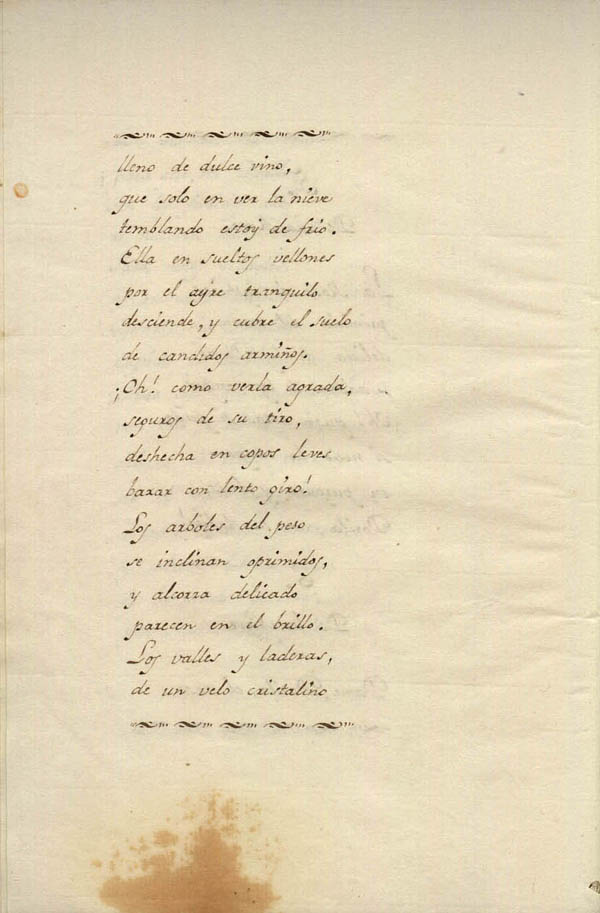 lleno de dulce vino,
que solo en ver la nieve
temblando estoy de frio.
Ella en sueltos vellones
por el ayre tranquilo
desciende, y cubre el suelo
de candidos armiños.
¡Oh! como verla agrada,
seguros de su tiro,
deshecha en copos leves
baxar con lento giro!
Los arboles del peso
se inclinan oprimidos,
y alcorza delicado
parecen en el brillo.
Los valles y laderas,
de un velo cristalino